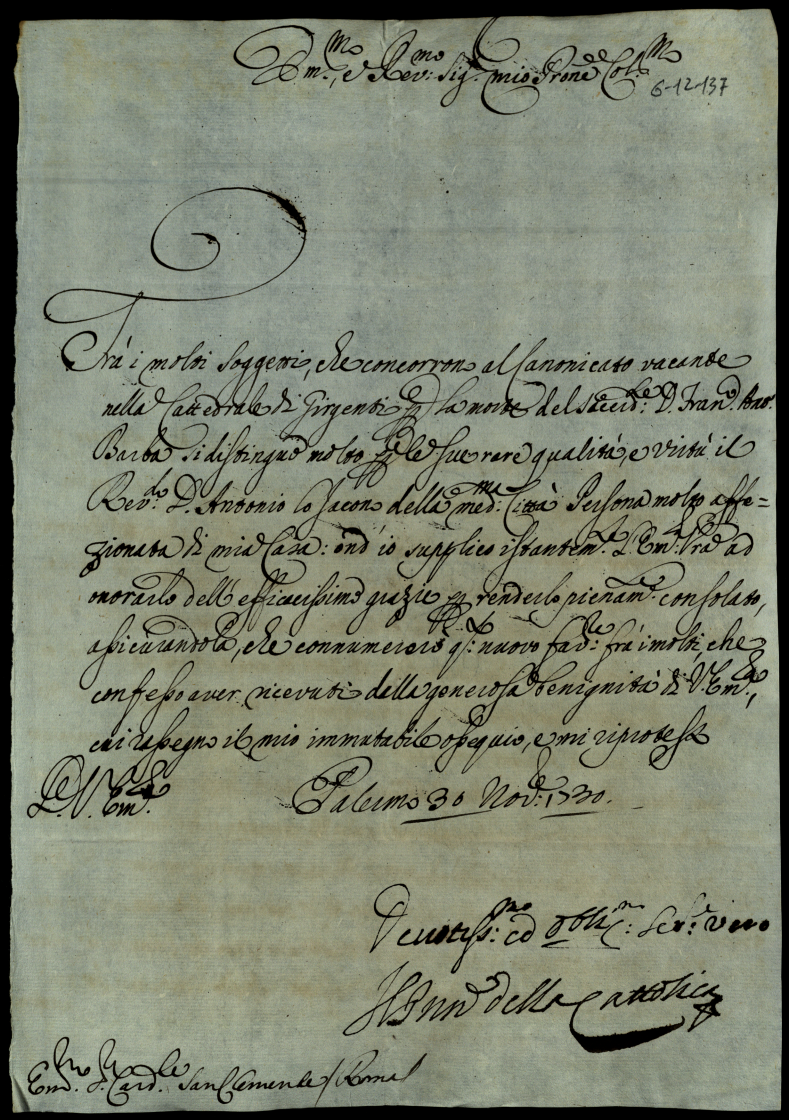 Em.mo e Rev:mo Sig.r mio Prone Col.mo
6-12-137
Frà i molti soggetti, che concorron al Canonicato vacante
nella Cattedrale di Girgenti p la morte del Sacerd:te D. Fran.o Ant.o
Barba si distingue molto p le sue rare qualità, e virtù il
Rev:do D. Antonio lo Jacono della med:ma Città Persona molto affe=
zionata di mia Casa: ond'io supplico istantem.te l'Em: Vra ad
onorarlo dell' efficacissime grazie p renderlo pienam.te consolato,
assicurandola, che connumererò q:to nuovo fav:re frà i molti, che
confesso aver ricevuti dalla generosa benignità di V. Em.za,
cui rassegno il mio immutabile ossequio, e mi riprotesto
D. V. Em.za Palermo 30 Nov.e 1730.
Devotiss:mo ed obblig:mo Ser:re vero
Il Prin.e della Cattolica
Em.mo S.r Card.le San Clemente / Roma